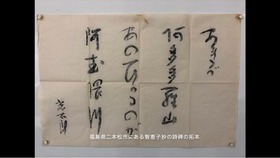 あれが
阿多多羅山
あのひかるのが
阿武隈川
光太郎
福島県二本松市にある智恵子抄の詩碑の拓本